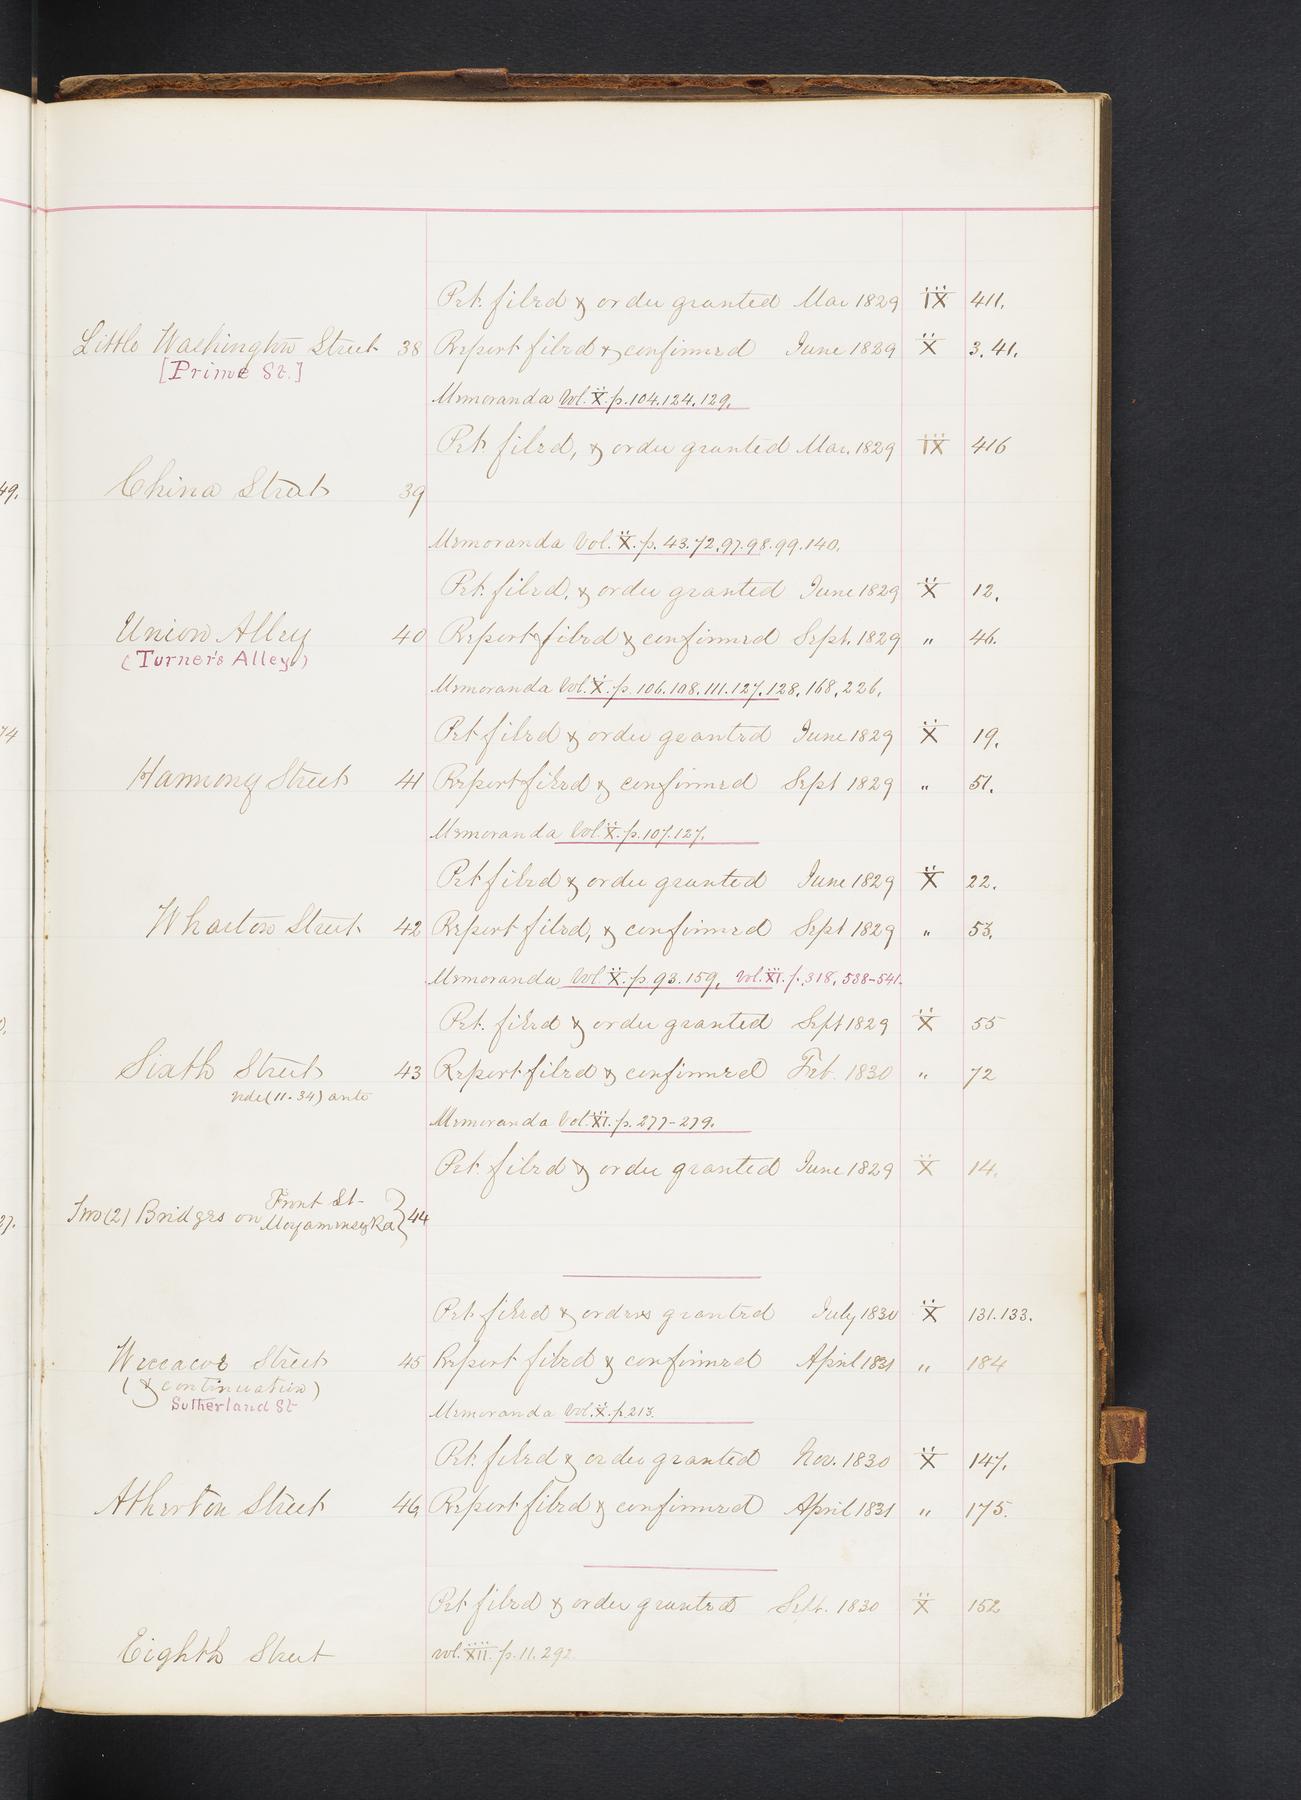 Pet. filed & order granted Mar 1829 IX 411.
Little Washington Street 38 Report filed & confirmed June 1829 X 3. 41.
[Prime St.]
Memoranda Vol. X. p. 104. 124. 129.
Pet. filed, & order granted Mar. 1829 IX 416
China Street 39
49.
Memoranda Vol. X. p. 43. 72. 97. 98. 99. 140.
Pet. filed, & order granted June 1829 X 12.
Union Alley 40 Report filed & confirmed Sept. 1829 " 46.
(Turner's Alley)
Memoranda Vol. X. p. 106. 108. 111. 127. 128. 168. 226.
74 Pet filed & order granted June 1829 X 19.
Harmony Street 41 Report filed & confirmed Sept 1829 " 51.
Memoranda Vol. X. p. 107. 127.
Pet filed & order granted June 1829 X 22.
Wharton Street 42 Report filed, & confirmed Sept 1829 " 53.
Memoranda Vol X. p. 93. 159, Vol. XI. p. 318, 538-541.
Pet. filed & order granted Sept 1829 X 55
Sixth Street 43 Report filed & confirmed Feb. 1830 " 72
vide (11-34) ante
Memoranda Vol. XI. p. 277-279.
Pet. filed & order granted June 1829 X 14.
Two (2) Bridges on Front St- Moyamensing Rd } 44
27.
Pet filed & orders granted July 1830 X 131. 133.
Weccacoe Street 45 Report filed & confirmed April 1831 " 184
(& continuation)
Sutherland St
Memoranda Vol. X. p. 213.
Pet. filed & order granted Nov. 1830 X 147.
Atherton Street 46 Report filed & confirmed April 1831 " 175.
Pet filed & order granted Sept. 1830 X 152
Eighth Street vol. XII. p. 11. 292.